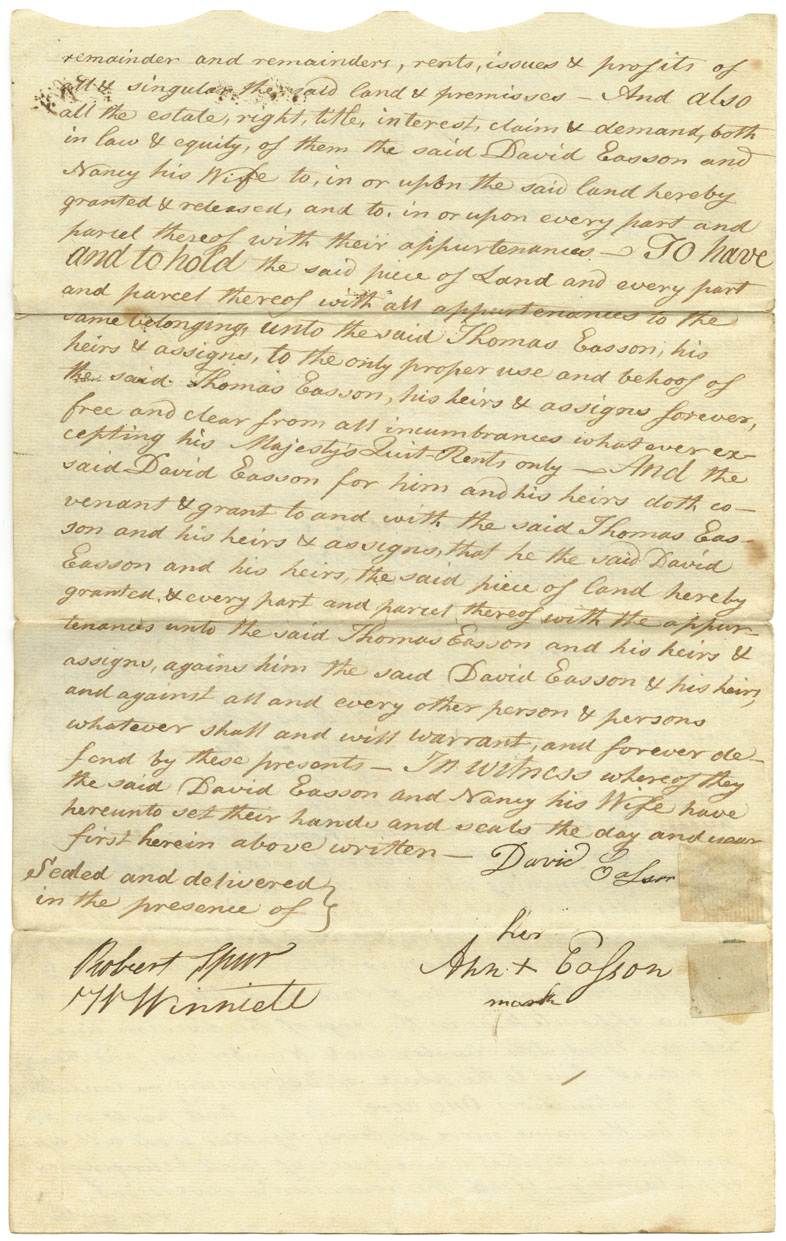 remainder and remainders, rents, issues & profits of
all & singular the said land & premisses – And also
all the estate, right, title, interest, claim & demand, both
in law & equity, of them the said David Easson and
Nancy his Wife to, in or upon the said land hereby
granted & released, and to, in or upon every part and
parcel thereof with their appurtenances – To have
and to hold the said piece of Land and every part
and parcel thereof with all appurtenances to the
same belonging, unto the said Thomas Easson, his
heirs & assigns, to the only proper use and behoof of
the said Thomas Easson, his heirs & assigns forever,
free and clear from all incumbrances whatever ex–
cepting his Majesty's Quit Rents only – And the
said David Easson for him and his heirs doth co–
venant & grant to and with the said Thomas Eas–
son and his heirs & assigns, that he the said David
Easson and his heirs, the said piece of land hereby
granted, & every part and parcel thereof with the appur–
tenances unto the said Thomas Easson and his heirs &
assigns, against him the said David Easson & his heirs,
and against all and every other person & persons
whatever shall and will warrant, and forever de–
fend by these presents – In witness whereof they
the said David Easson and Nancy his Wife have
hereunto set their hands and seals the day and year
first herein above written – David Easson
Sealed and delivered
in the presence of }
her
Robert Spur Ann + Easson
W Winniett mark